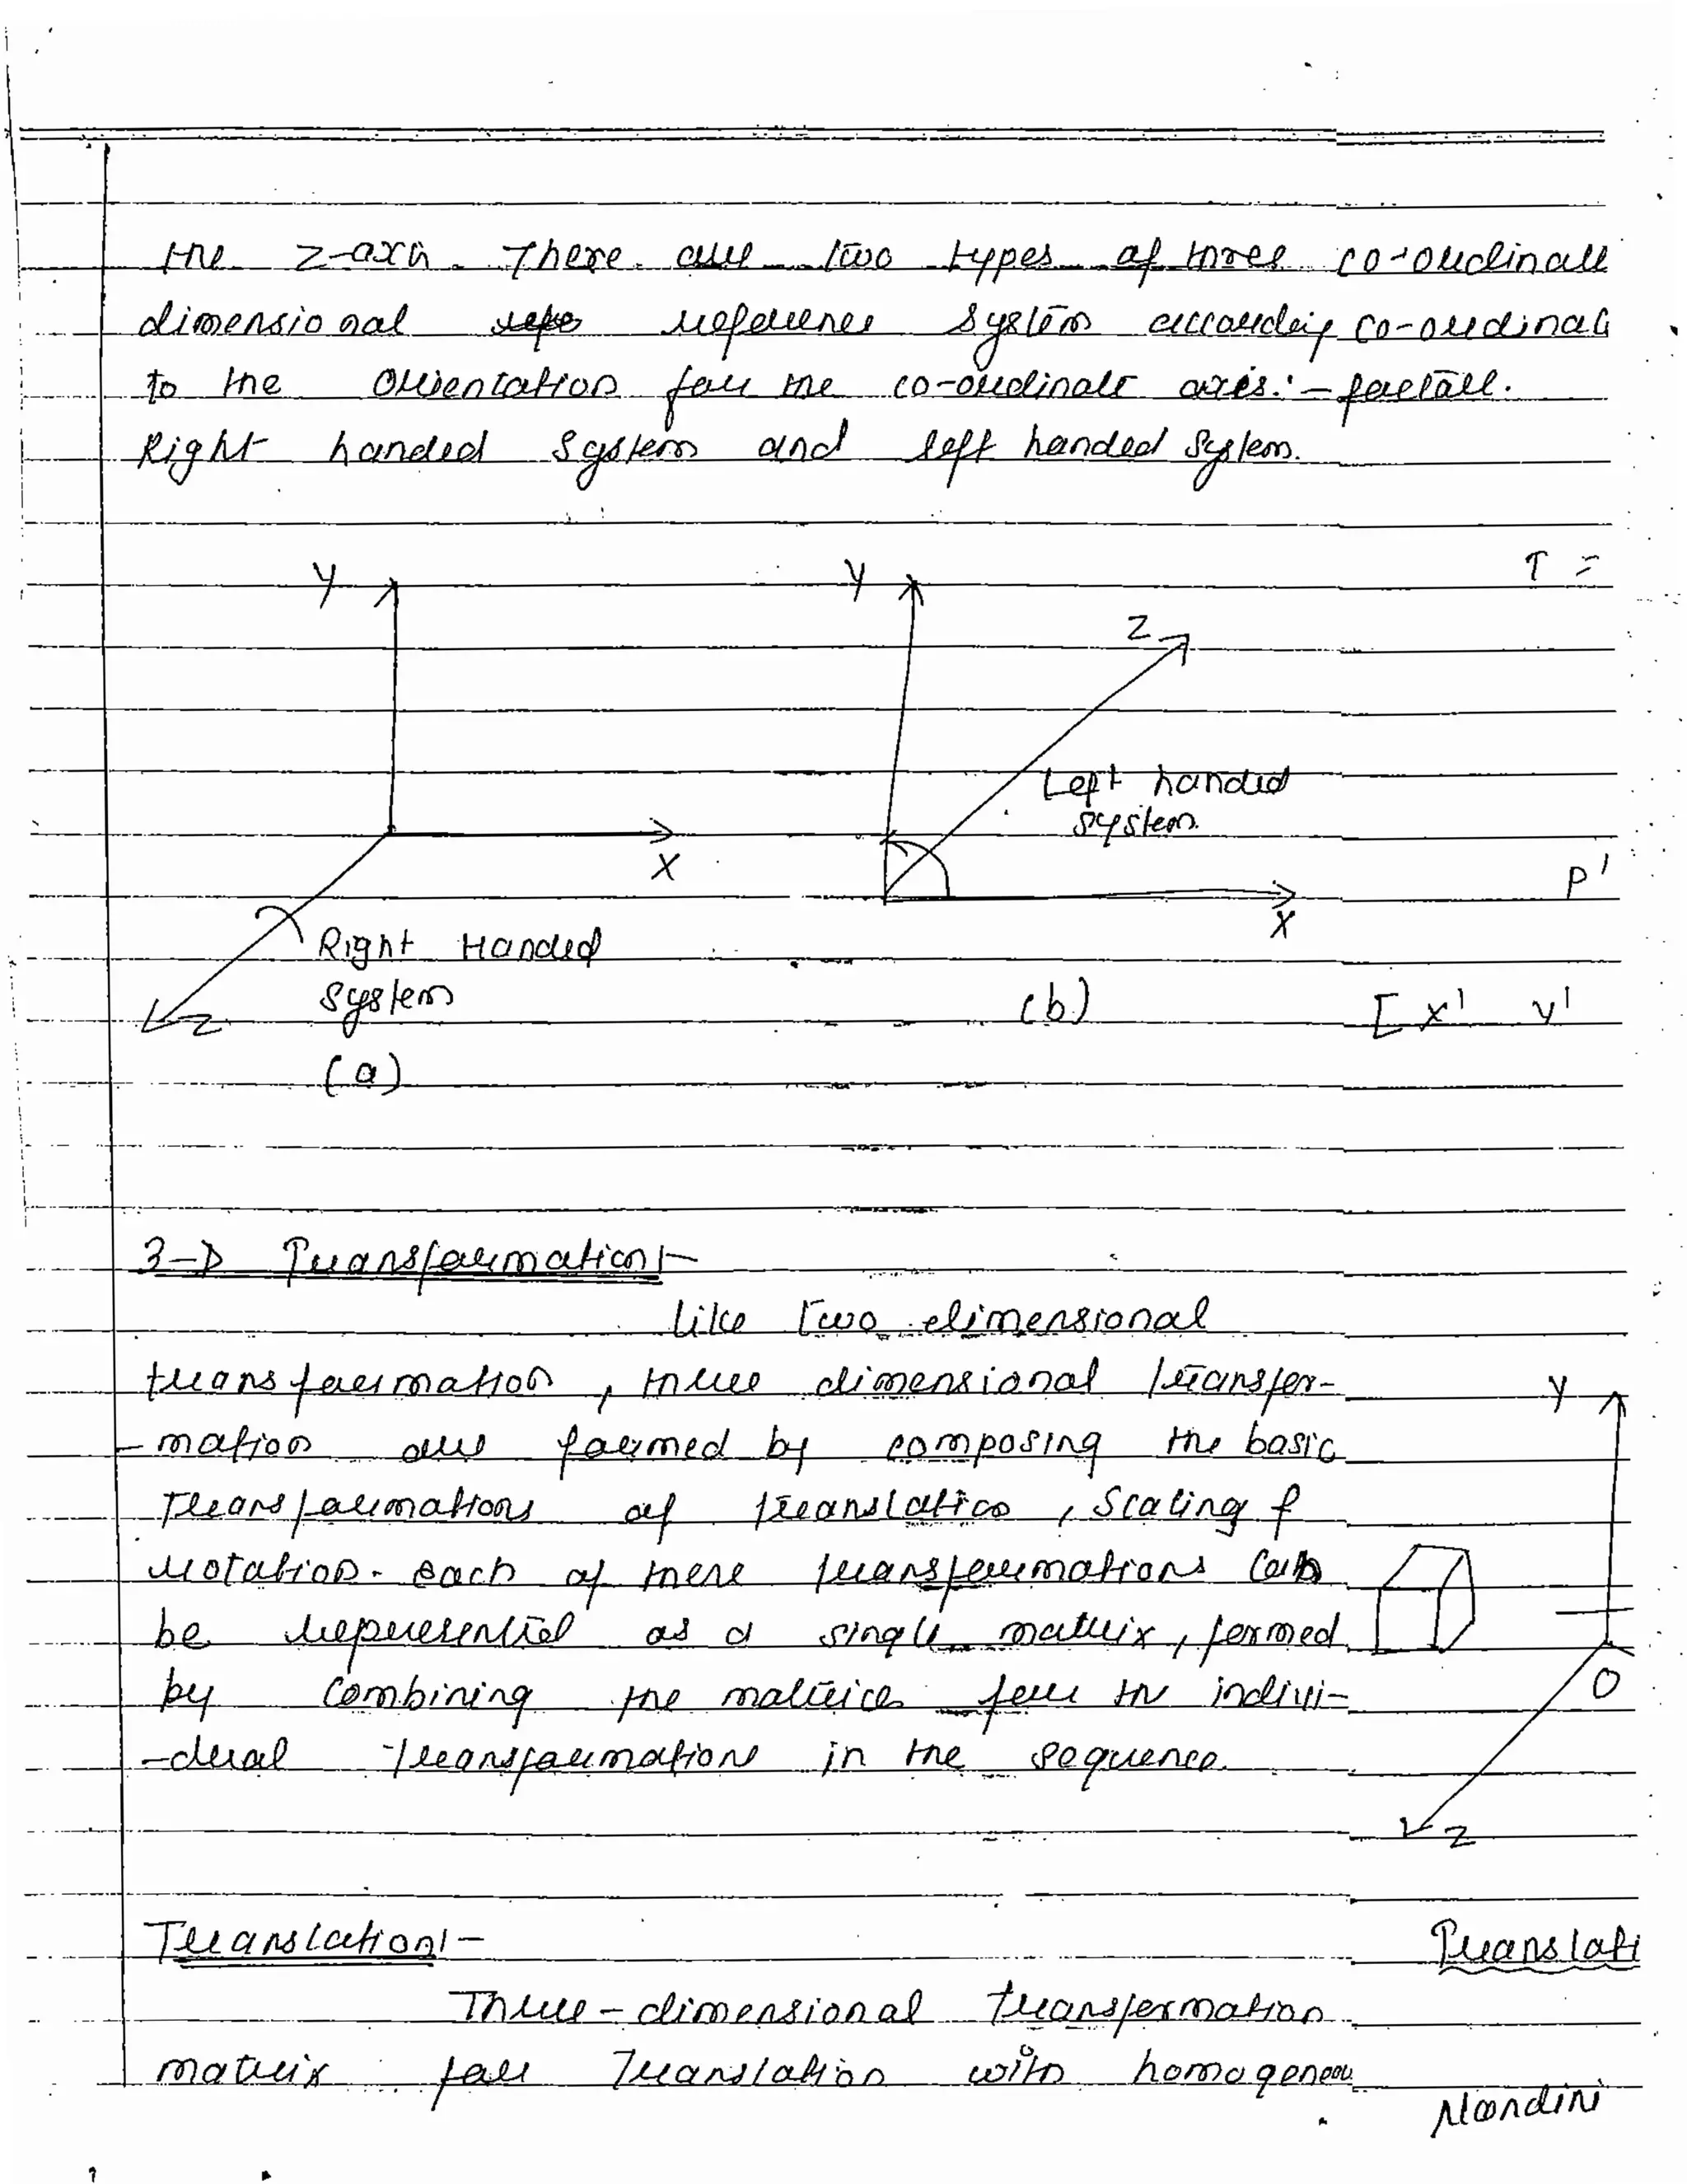 the z-axis. There are two types of three co-ordinate
dimensional refe reference system according co-ordinat
to the orientation for the co-ordinate axis:-
Right handed system and left handed system.
Y
Y
Z
T =
Left handed
system.
X
X
P'
Right Handed
system
Z
(a)
(b)
[ x' y'
3-D Transformation:-
Like two dimensional
transformation, three dimensional transfor-
-mation are formed by composing the basic
Transformations of translation, Scaling &
rotation. each of these transformations can
be represented as a single matrix, formed
by Combining the matrices for the indivi-
-dual transformations in the sequence.
Y
O
Z
Translation:-
Translati
Three-dimensional transformation
matrix for Translation with homogeneou
Nandini